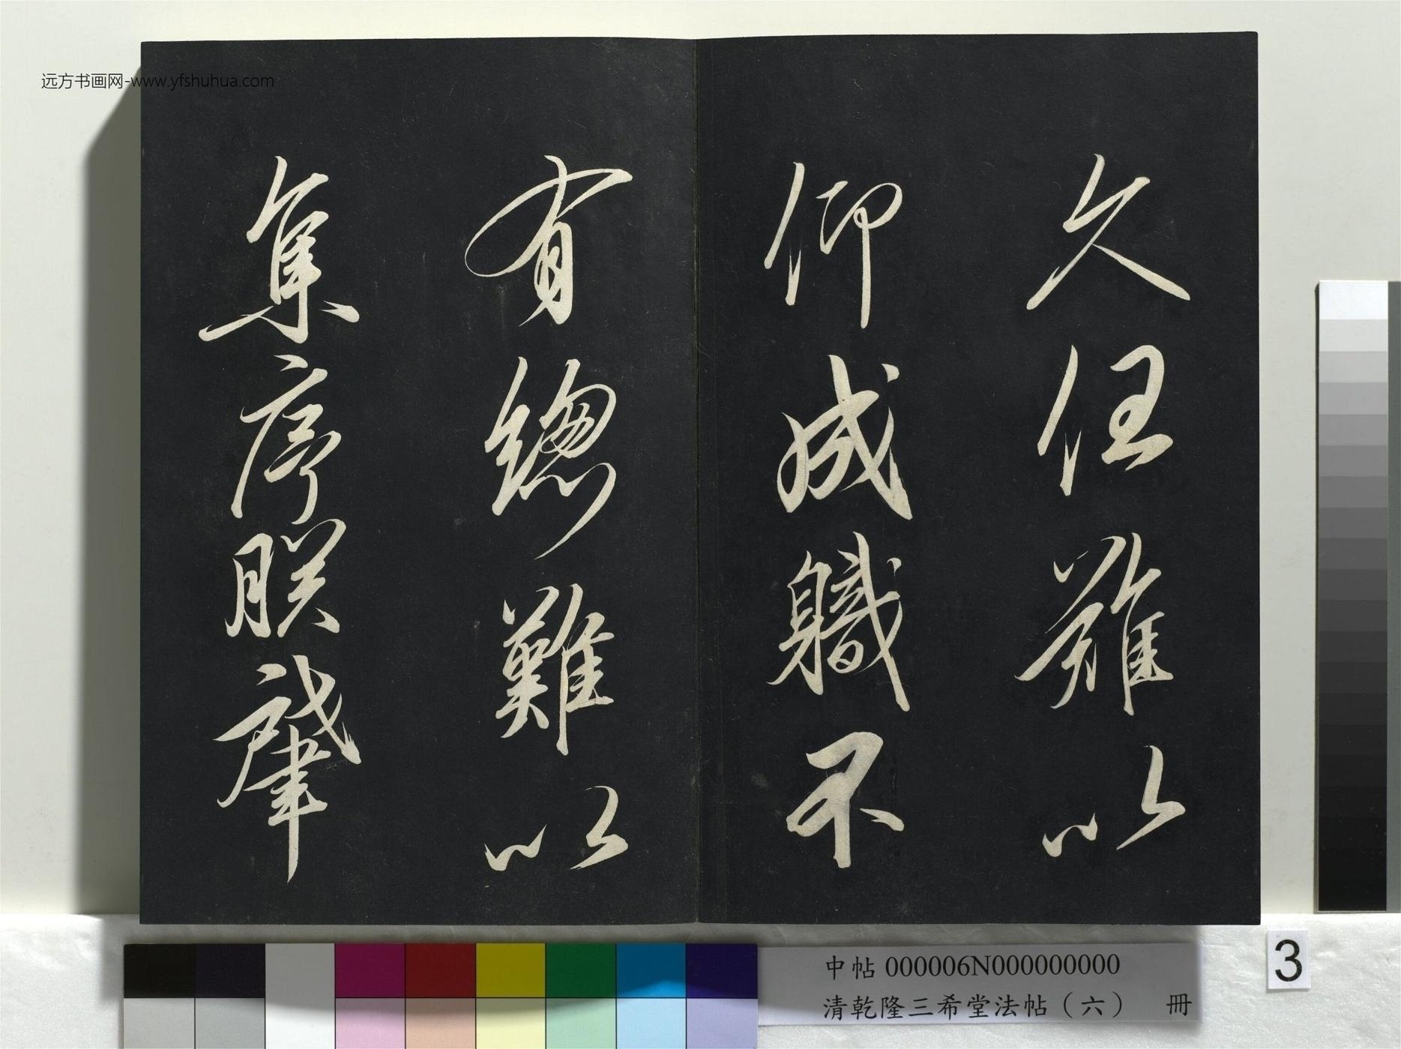 远方书画网-www.yfshuhua.com
久任難以
仰成職不
有總難以
集序朕肇
中帖 000006N000000000
清乾隆三希堂法帖(六) 冊
3